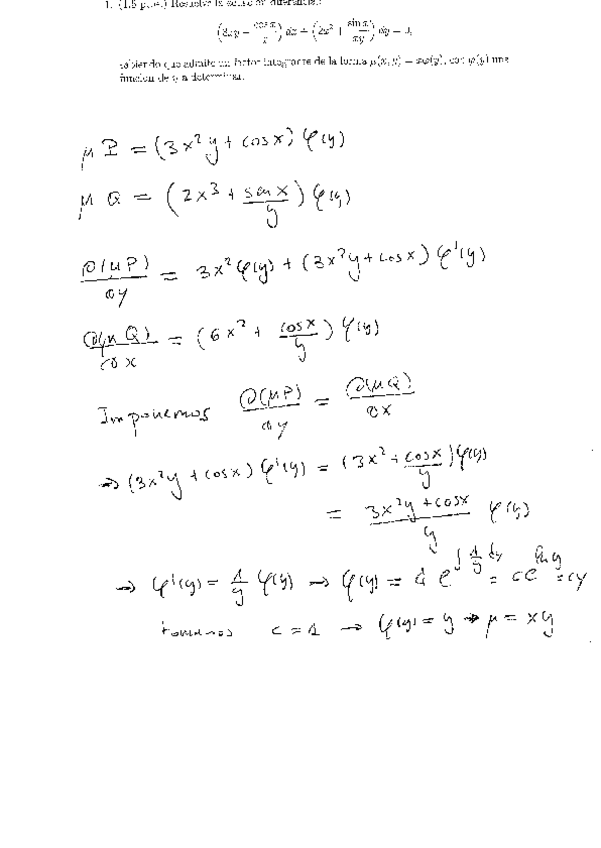 1. (1.5 p
(3xy + cos x / x) dx + (2x² + sin x / xy) dy = 0,
sabiendo que admite un factor integrante de la forma μ(x, y) = xφ(y), con φ(y) una
función de y a determinar.
μ P = (3x²y + cos x) φ(y)
μ Q = (2x³ + sen x / y) φ(y)
∂(μP) / ∂y = 3x² φ(y) + (3x²y + cos x) φ'(y)
∂(μQ) / ∂x = (6x² + cos x / y) φ(y)
Imponemos ∂(μP) / ∂y = ∂(μQ) / ∂x
→ (3x²y + cos x) φ'(y) = (3x² + cos x / y) φ(y)
= 3x²y + cos x / y φ(y)
→ φ'(y) = 1/y φ(y) → φ(y) = c e^∫ 1/y dy = c e^ln y = cy
tomamos c = 1 → φ(y) = y → μ = xy